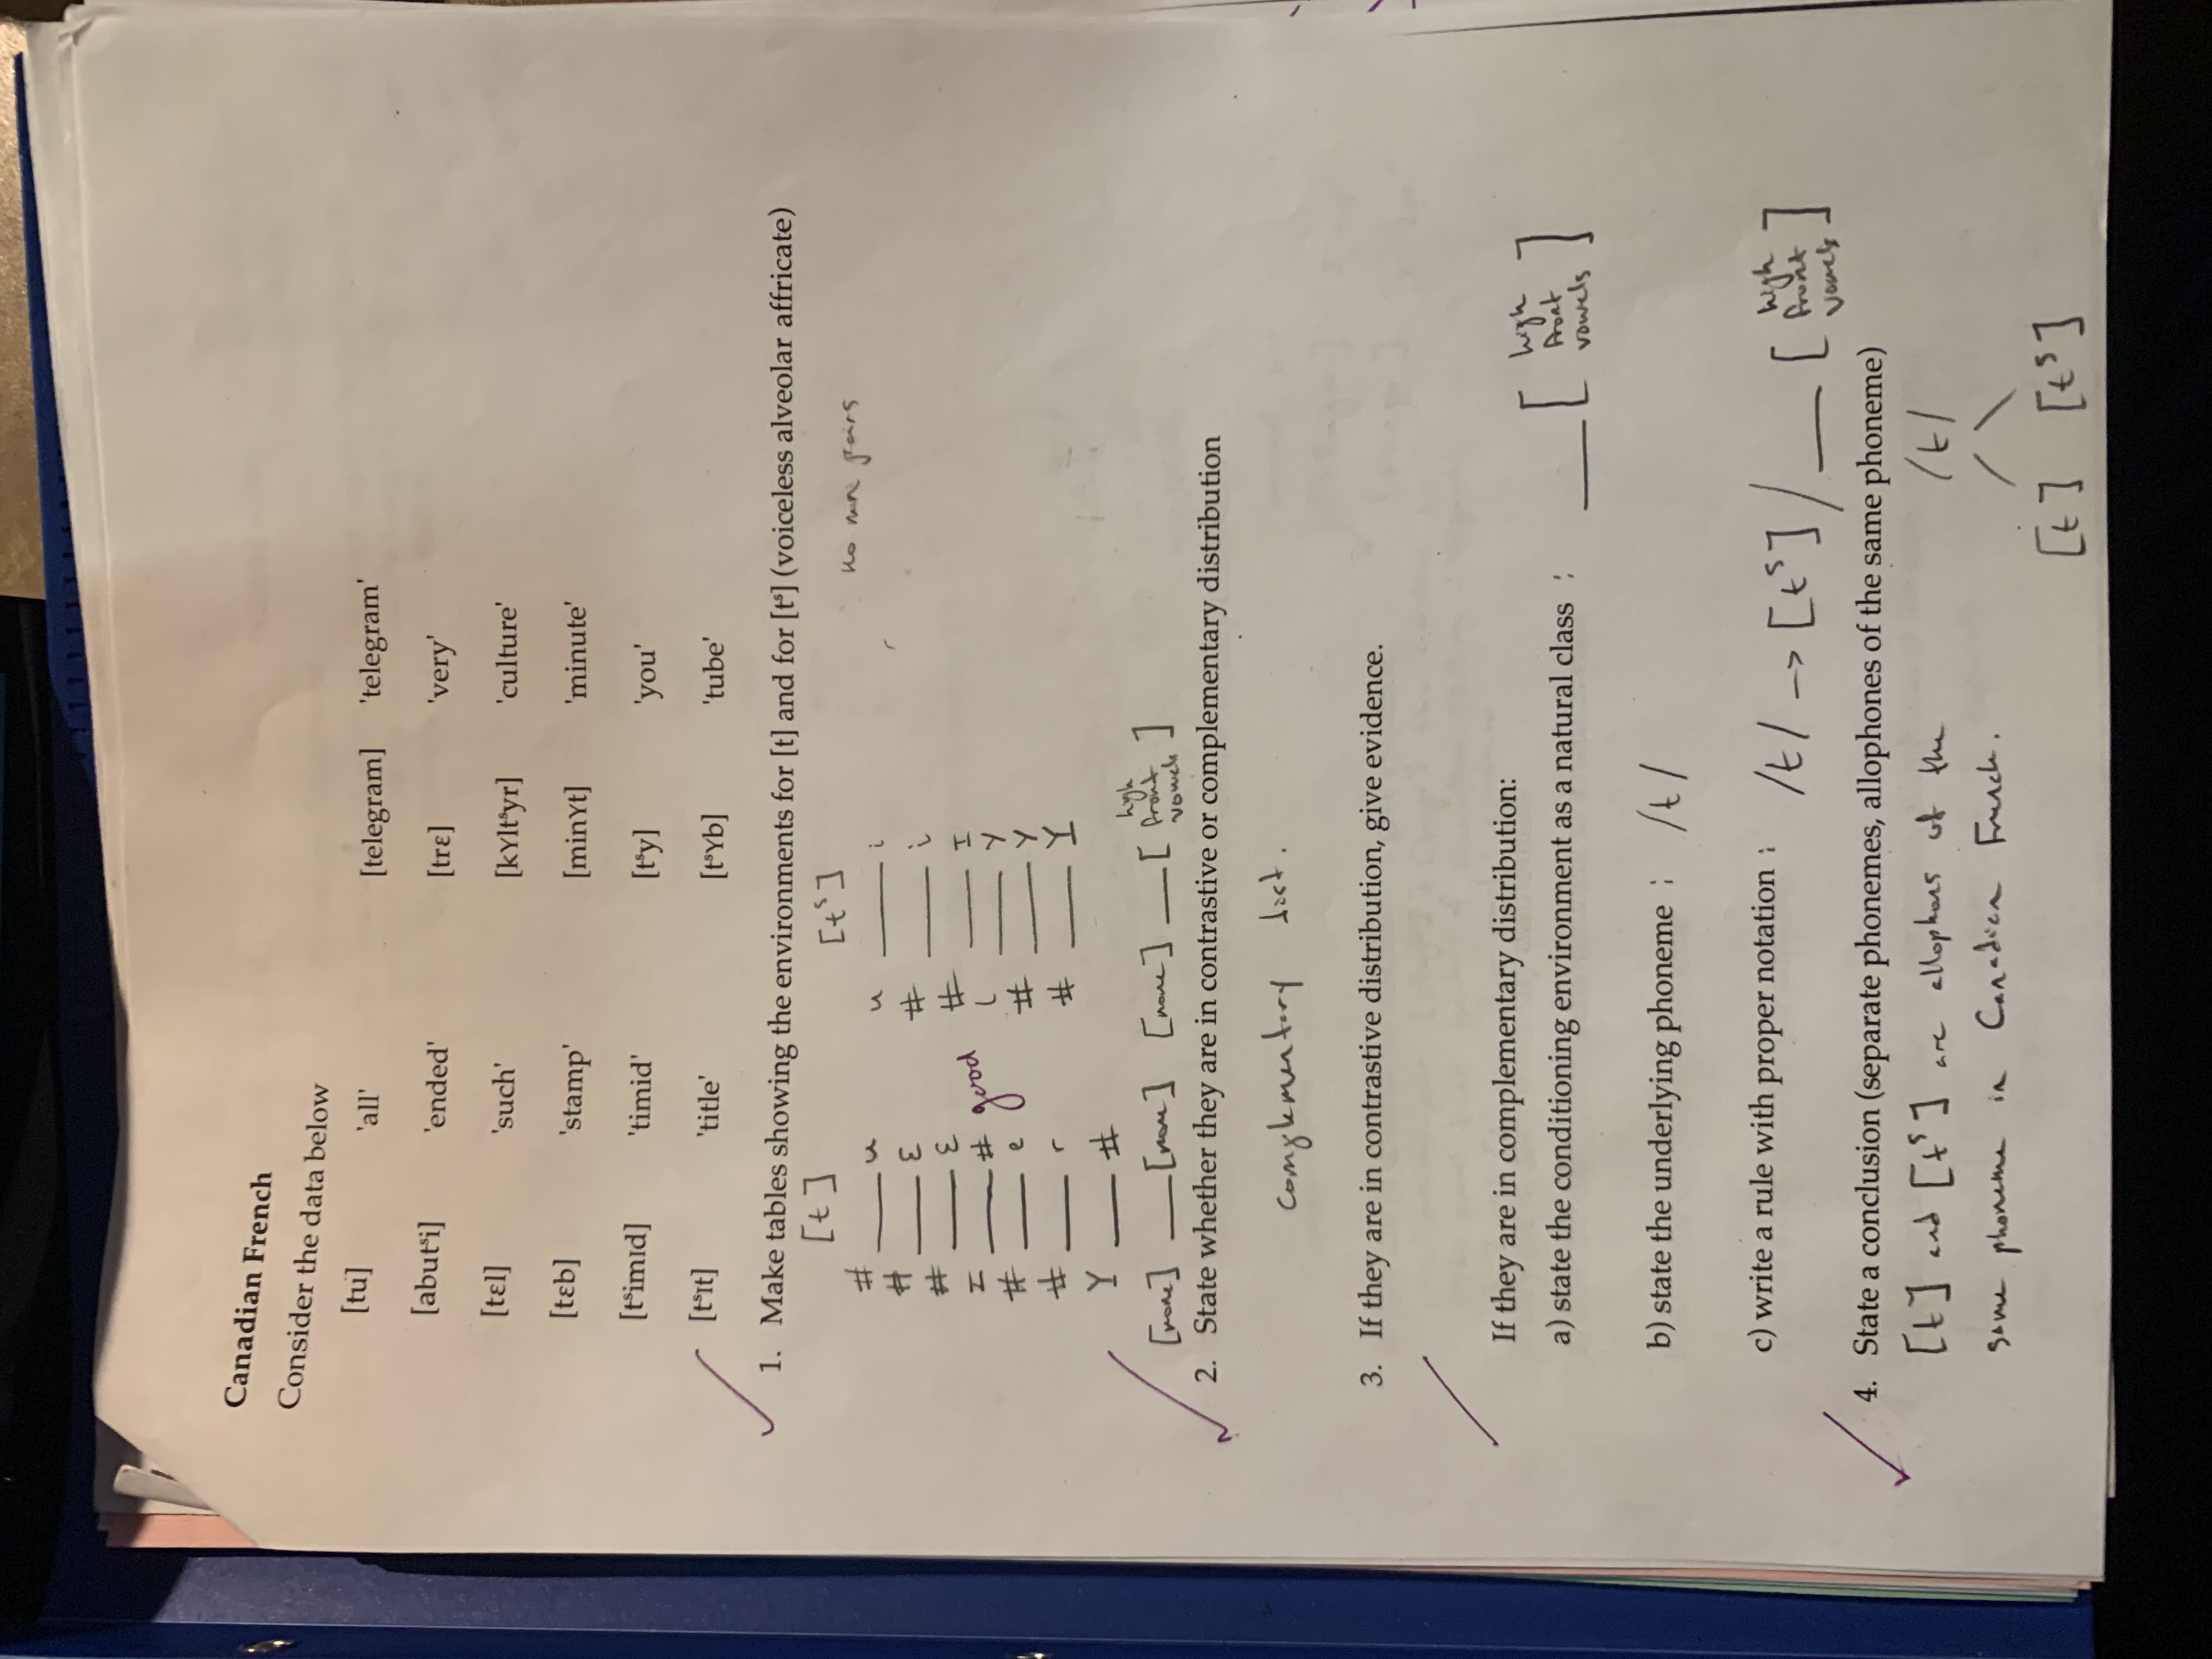 Canadian French
Consider the data below
[tu] 'all' [telegram] 'telegram'
[abutˢi] 'ended' [trɛ] 'very'
[tɛl] 'such' [kʏltˢyr] 'culture'
[tɛb] 'stamp' [minʏt] 'minute'
[tˢimɪd] 'timid' [tˢy] 'you'
[tˢɪt] 'title' [tˢʏb] 'tube'
1. Make tables showing the environments for [t] and for [tˢ] (voiceless alveolar affricate)
[t] [tˢ]
no min pairs
# ___ u u ___ i
# ___ ɛ # ___ i
# ___ ɛ # ___ ɪ
ɪ ___ # good l ___ y
# ___ e # ___ y
# ___ r # ___ ʏ
ʏ ___ #
[none] ___ [none] [none] ___ [high front vowels]
2. State whether they are in contrastive or complementary distribution
complementary dist.
3. If they are in contrastive distribution, give evidence.
If they are in complementary distribution:
a) state the conditioning environment as a natural class : ___ [high front vowels]
b) state the underlying phoneme : /t/
c) write a rule with proper notation : /t/ → [tˢ] / ___ [high front vowels]
4. State a conclusion (separate phonemes, allophones of the same phoneme)
[t] and [tˢ] are allophones of the /t/
same phoneme in Canadian French.
[t] [tˢ]